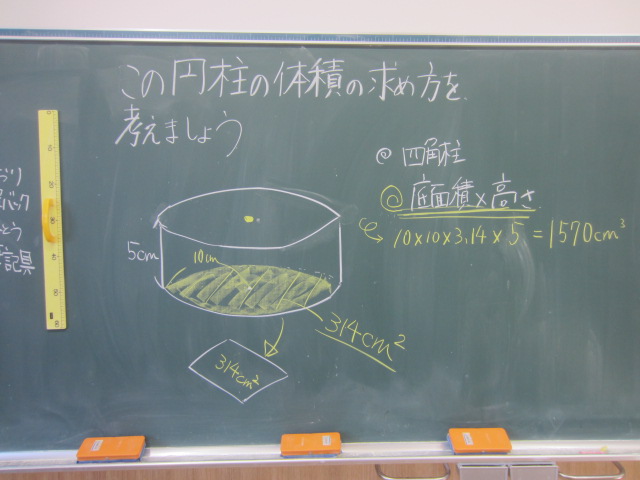 この円柱の体積の求め方を
考えましょう
◎ 四角柱
◎ 底面積×高さ
10×10×3.14×5=1570cm³
5cm
10cm
314cm²
314cm²
記具